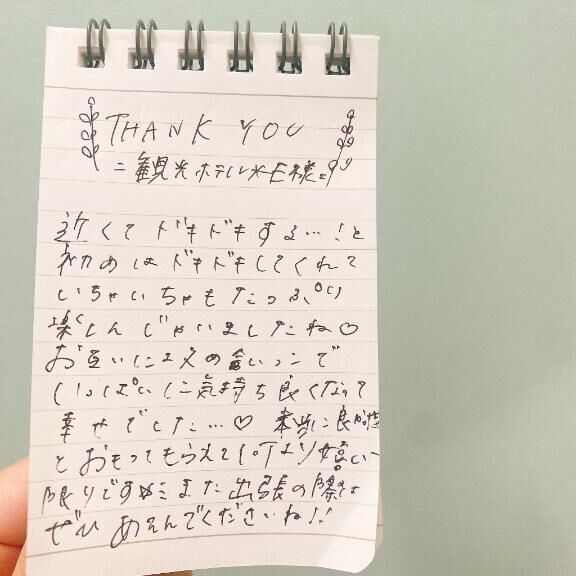 THANK YOU
観光ホテル 様
近くて ドキドキする…！と
初めはドキドキしてくれて
いちゃいちゃもたっぷり
楽しんじゃいましたね♡
お互いに の言いっこで
いっぱいに気持ち良くなって
幸せでした…♡ 本当に良かった
とおもってもらえて何より嬉しい
限りです また出張の際は
ぜひ あそんでくださいね!!